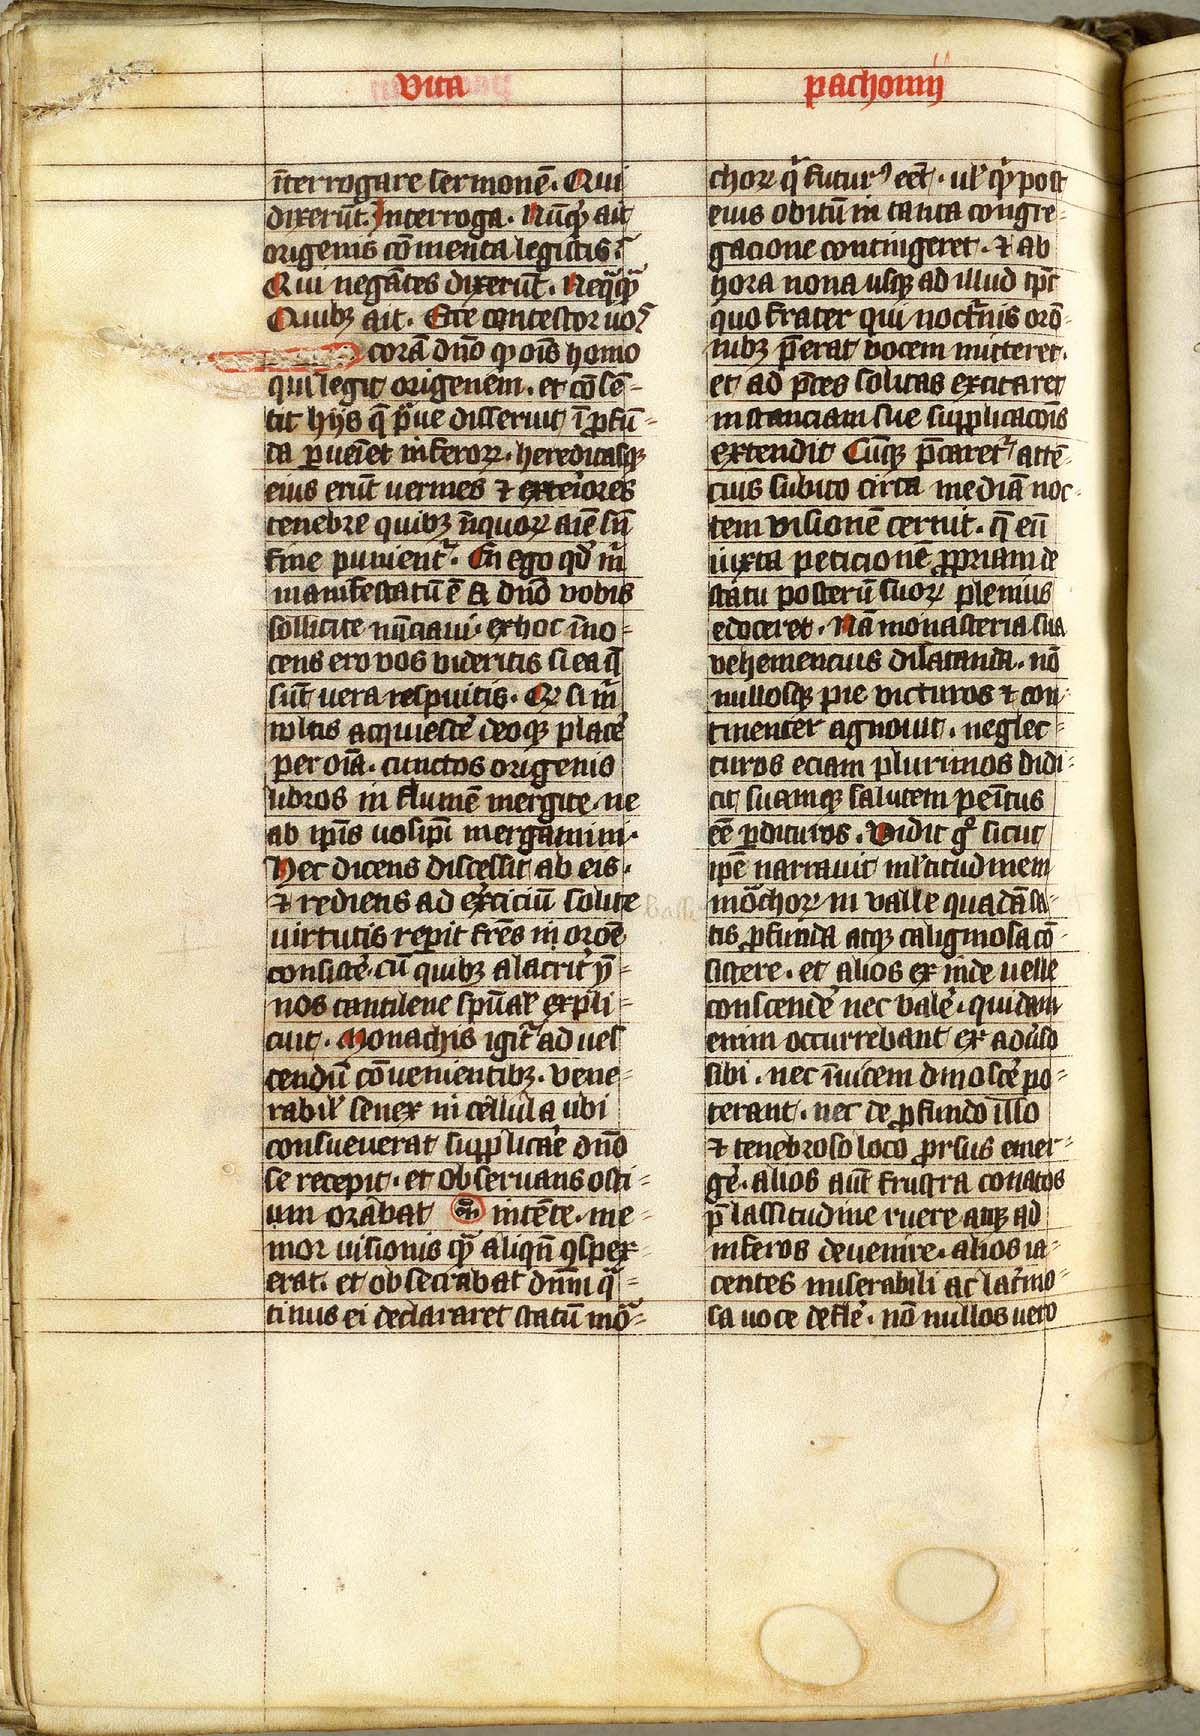 Vita
pachomij
īterrogare sermonē. Qui
dixerūt. Interroga. Nūqͥd ait
origenis cōmenta legistis.
Qui negātes dixerūt. Neqͣqͣ
Quibꝫ ait. Ecce contestor vos
corā dn̄o ꝙ oīs homo
qui legit origenem. et cōsē-
tit hijs q̄ pͣue disseruit ī ꝓfū-
da ꝑueīet inferoꝝ. hereditasqꝫ
eius erūt vermes ⁊ exteͥores
tenebre quibꝫ īiquoꝝ aīe sn̄
fine punientͬ. En ego qd̓ mͥ
manifestatū ē A dn̄o vobis
sollicite nūciaui. ex hoc īno-
cens ero vos videritis si ea q̄
sūt vera respuitis. Qꝫ si mͥ
vultis acquiesce̓ deoqꝫ place̓
per oīa. cunctos origenis
libros in flumē mergite. ne
ab ipīs vosipī mergamini.
Hec dicens discessit ab eis.
⁊ rediens ad ex̓ciciū solite
virtutis reperit fr̄es in oroē
consiste̓. cū quibꝫ alacrit̓ ym̄-
nos cantilene spūal' expli-
cuit. Monachis igit̓ ad ves-
cendū cōvenientibꝫ. vene-
rabil' senex in cellula ubi
consueverat supplica̓e dn̄o
se recepit. et observans osti-
um orabat oīn intēte. me-
mor visionis qͣm aliqn̄ ꝯspex-
erat. et obsecrabat dn̄m qͣ-
tinus ei declararet statū mōͣ-
choꝝ qͥ futurꝰ eēt. ul' qͥd post
eius obitū in tanta congre-
gacione contingeret. ⁊ ab
hora nona usqꝫ ad illud tp̄s
quo frater qui noctͬnis orō-
nibꝫ p̄erat vocem mitteret.
et ad p̄ces solitas excitaret
instanciam sue supplicacōis
extendit Cūqꝫ p̄caretͬ attē-
cius subito circa mediā noc-
tem visionē cernit. q̄ eū
iuxta peticionē ꝓpriam de
statu posterū suoꝝ plenius
edoceret. Nā monasteria sua
vehemencius dilatanda. nō
nullosqꝫ pie victuros ⁊ con-
tinenter agnovit. neglec-
turos eciam plurimos didi-
cit suamqꝫ salutem peītus
eē ꝑdituros. Vidit gͦ sicut
ipē narravit ml̓titudinem
mōͣchoꝝ in valle quadā sa-
tis ꝓfunda atqꝫ caliginosa cō-
sistere. et alios ex inde velle
conscende̓ nec vale̓. quidam
enim occurrebant ex adv̓so
sibi. nec īuicem dinosce̓ po-
terant. nec de ꝓfundo illo
⁊ tenebroso loco ꝓrsus emer-
ge̓. alios aūt frustra conatos
p̄ lassitudine ruere atqꝫ ad
inferos devenire. alios ia-
centes miserabili ac lac̓mo-
sa voce defle̓. nō nullos vero